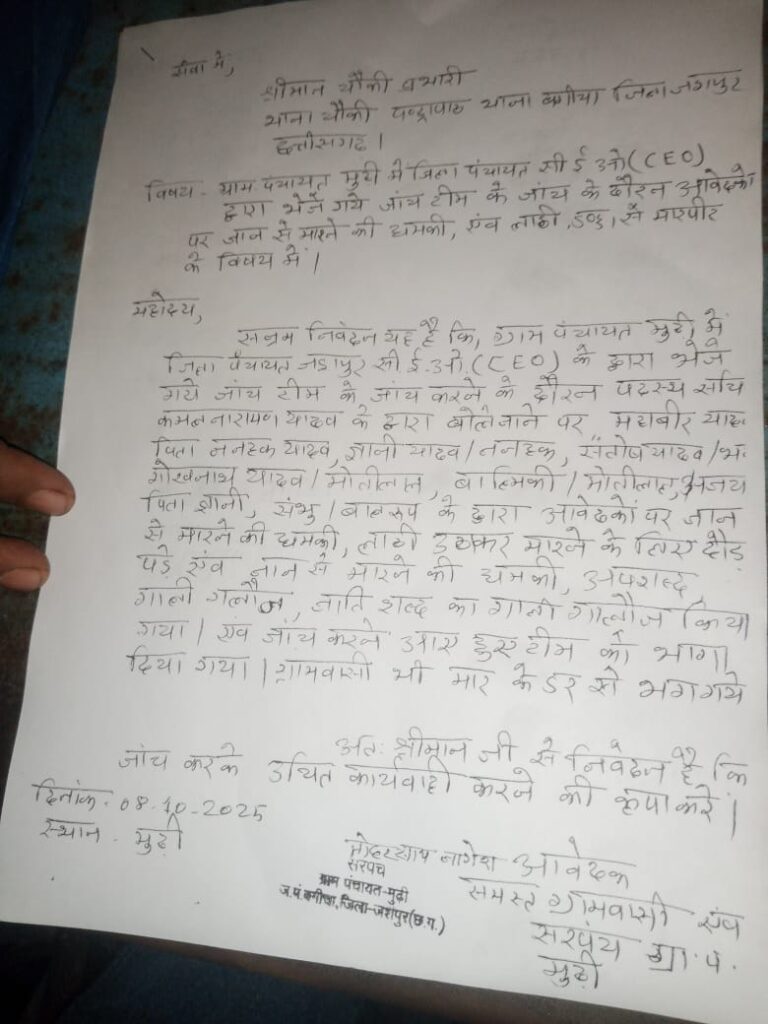 सेवा में,
श्रीमान चौकी प्रभारी
थाना चौकी पन्ड्रापाठ थाना बगीचा जिला जशपुर
छत्तीसगढ़।
विषय - ग्राम पंचायत मुढ़ी में जिला पंचायत सी ई ओ (CEO)
द्वारा भेजे गये जांच टीम के जांच के दौरन आवेदको
पर जान से मारने की धमकी, एंव लाठी, डण्डा से मारपीट
के विषय में।
महोदय,
सनम्र निवेदन यह है कि, ग्राम पंचायत मुढ़ी में
जिला पंचायत जशपुर सी ई.ओ.(CEO) के द्वारा भेजे
गये जांच टीम के जांच करने के दौरन पदस्थ सचि
कमलनारायण यादव के द्वारा बोले जाने पर महाबीर याद
पिता ननहक यादव, ज्ञानी यादव/ननहक, संतोष यादव/
गोरखनाथ यादव/मोतीलाल, बाल्मिकी/मोतीलाल, अजय
पिता ज्ञानी, संभु/बालरूप के द्वारा आवेदकों पर जान
से मारने की धमकी, लाठी उठाकर मारने के लिए दौड़
पड़े एंव जान से मारने की धमकी, अपशब्द,
गाली गलौज, जाति शब्द का गाली गालौज किया
गया। एंव जांच करने आए हुए टीम को भागा
दिया गया। ग्रामवासी भी मार के डर से भग गये
अतः श्रीमान जी से निवेदन है कि
जांच करके उचित कार्यवाही करने की कृपा करें।
दिनांक - 08-10-2025
स्थान - मुढ़ी
नागेश आवेदक
सरपंच
ग्राम पंचायत-मुढ़ी
ज.पं.बगीचा, जिला-जशपुर(छ.ग.)
समस्त ग्रामवासी एंव
सरपंच ग्रा.पं.
मुढ़ी